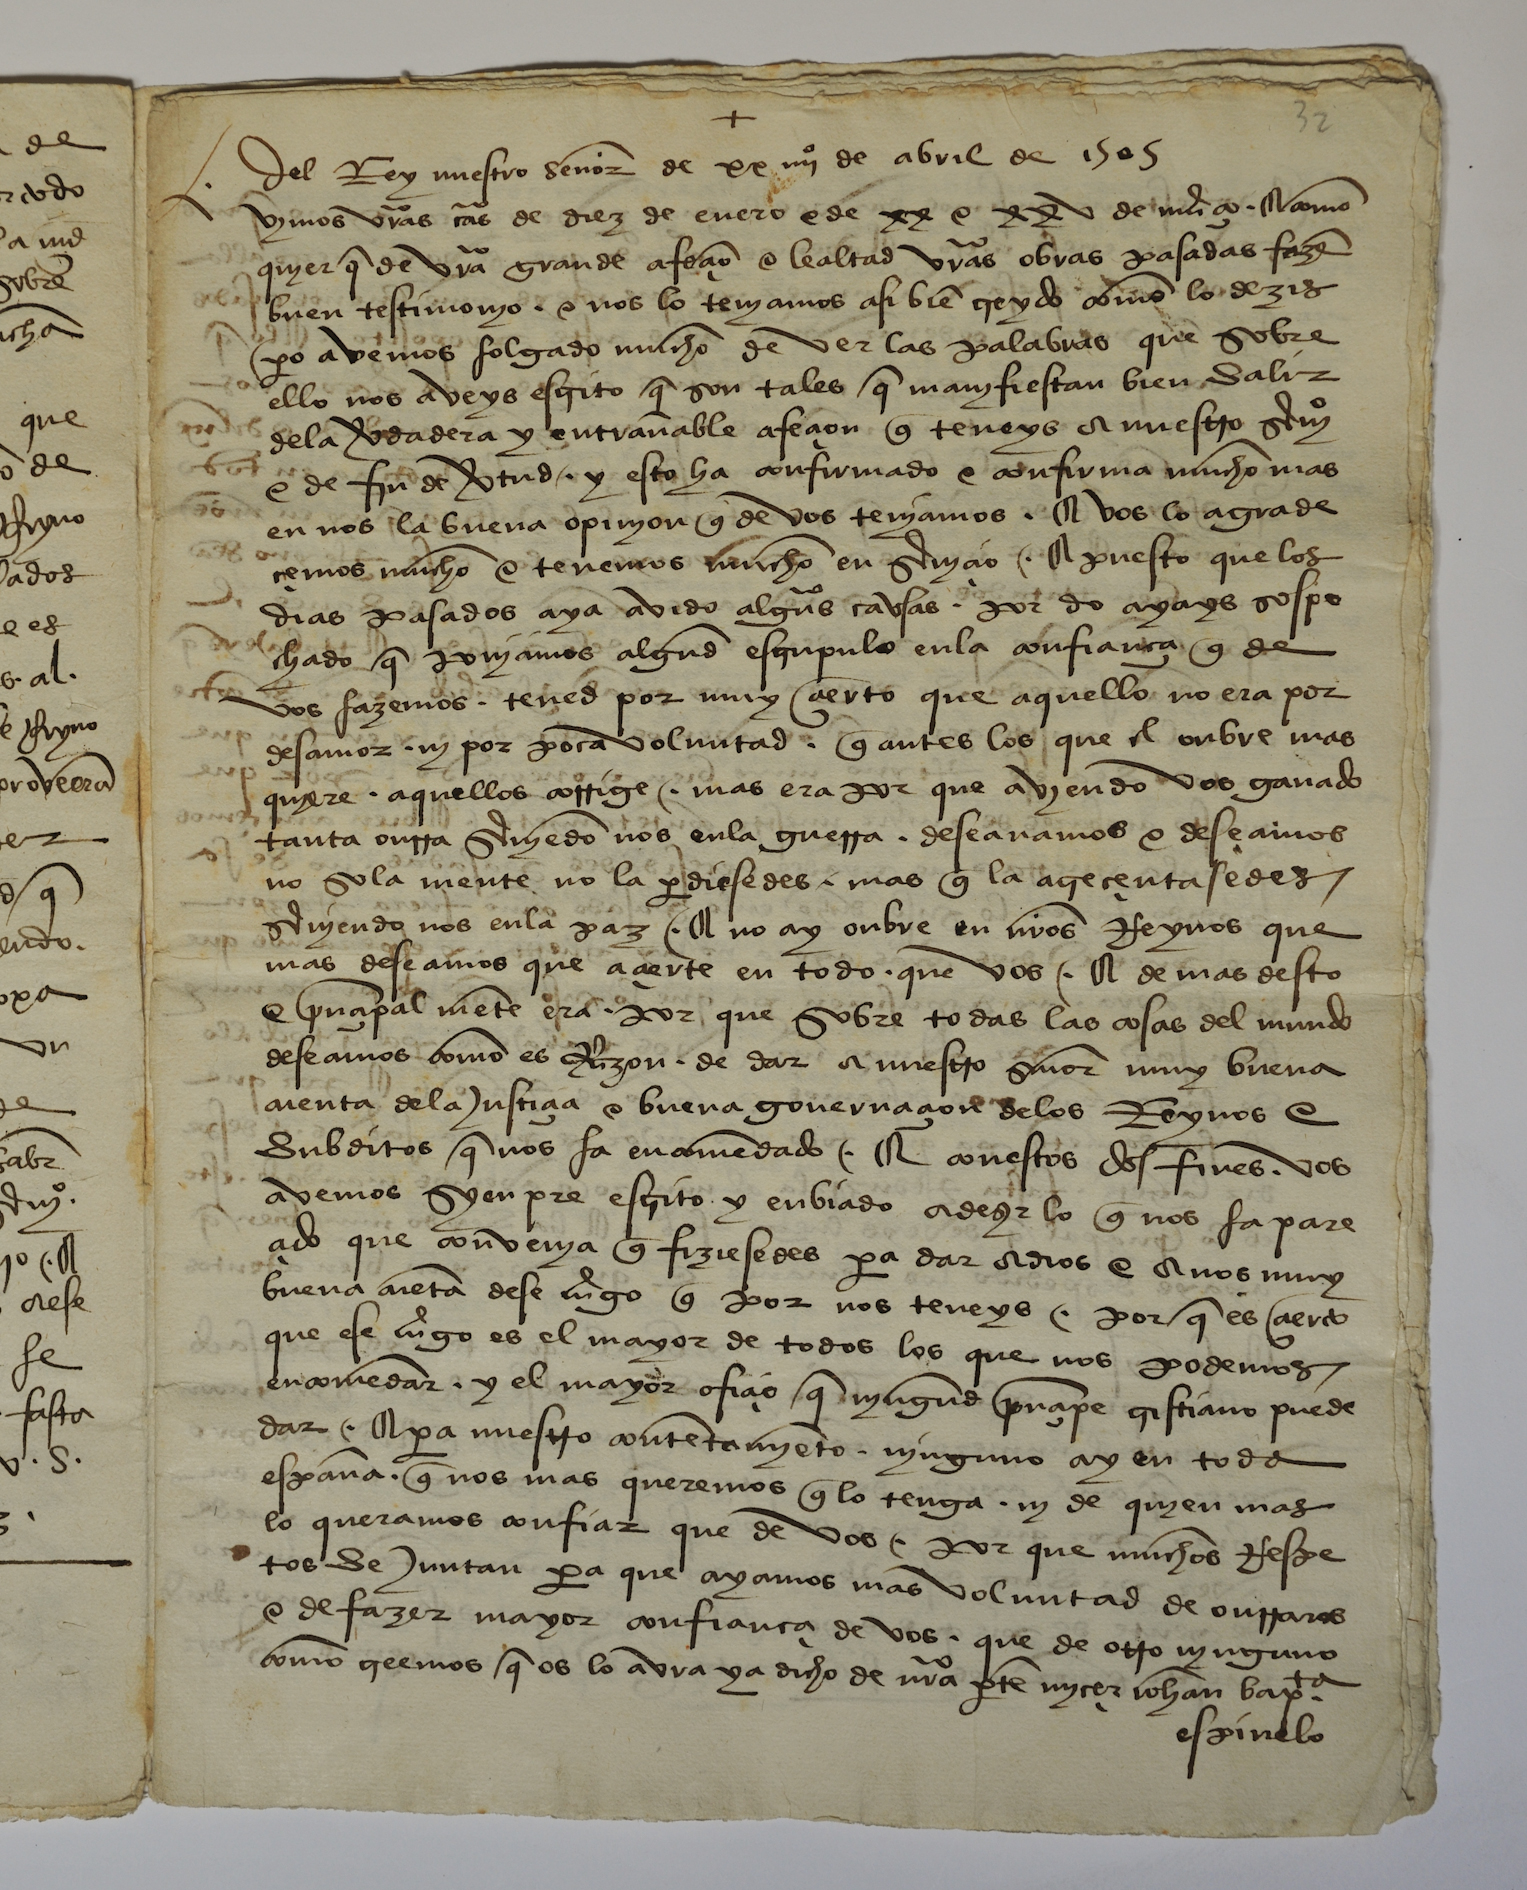 +
32
Del Rey nuestro Señor de xx iiijº de abril de 1505
vymos vrãs cãs de diez de enero e de xx e xxv de março. A como
quyer q̃ de vrã grande afeçiõ e lealtad vrãs obras pasadas fazẽ
buen testimonyo. e nos lo tenyamos asi biẽ creydo como lo dezis
pero avemos folgado mucho de ver las palabras que sobre
ello nos aveys escrito q̃ son tales q̃ manyfiestan bien salir
dela verdadera y entrañable afeçion q̃ teneys a nuestro serviçº
e de fyn de virtud. y esto ha confirmado e confirma mucho mas
en nos la buena opinyon q̃ de vos tenyamos. A vos lo agrade
çemos mucho e tenemos mucho en serviçio. A puesto que los
dias pasados aya avido algũas cavsas. por do ayays sospe
chado q̃ ponyamos algund escrupulo enla confiança q̃ de
vos fazemos. tened por muy çierto que aquello no era por
desamor. ny por poca voluntad. q̃ antes los que el onbre mas
quyere. aquellos corrige. mas era por que avyendo vos ganado
tanta onrra servyẽdo nos enla guerra. deseavamos e deseamos
no sola mente no la perdiesedes. mas q̃ la acreçentasedes
servyendo nos enla paz. A no ay onbre en nrõs Reynos que
mas deseamos que açierte en todo. que vos. A de mas desto
e prinçipal mẽte era. por que sobre todas las cosas del mundo
deseamos como es Razon. de dar a nuestro señor muy buena
cuenta dela Justiçia e buena governaçion delos Reynos e
Subditos q̃ nos ha encomẽdado. A con estos dos fines. vos
avemos syenpre escrito y enbiado a dezir lo q̃ nos ha pare
çido que convenya q̃ fiziesedes para dar a dios e a nos muy
buena cuẽta dese cargo q̃ por nos teneys. por q̃ es çierto
que ese cargo es el mayor de todos los que nos podemos
encomẽdar. y el mayor ofiçio q̃ nyngund prinçipe cristiano puede
dar. A para nuestro contẽtamyẽto. nynguno ay en toda
españa. q̃ nos mas queremos q̃ lo tenga. ny de quyen mas
lo queramos confiar que de vos. por que muchos Respe
tos se Juntan para que ayamos mas voluntad de onrraros
e de fazer mayor confiança de vos. que de otro nynguno
como creemos q̃ os lo avra ya dicho de nrã parte myçer iohan bapta.
espinelo